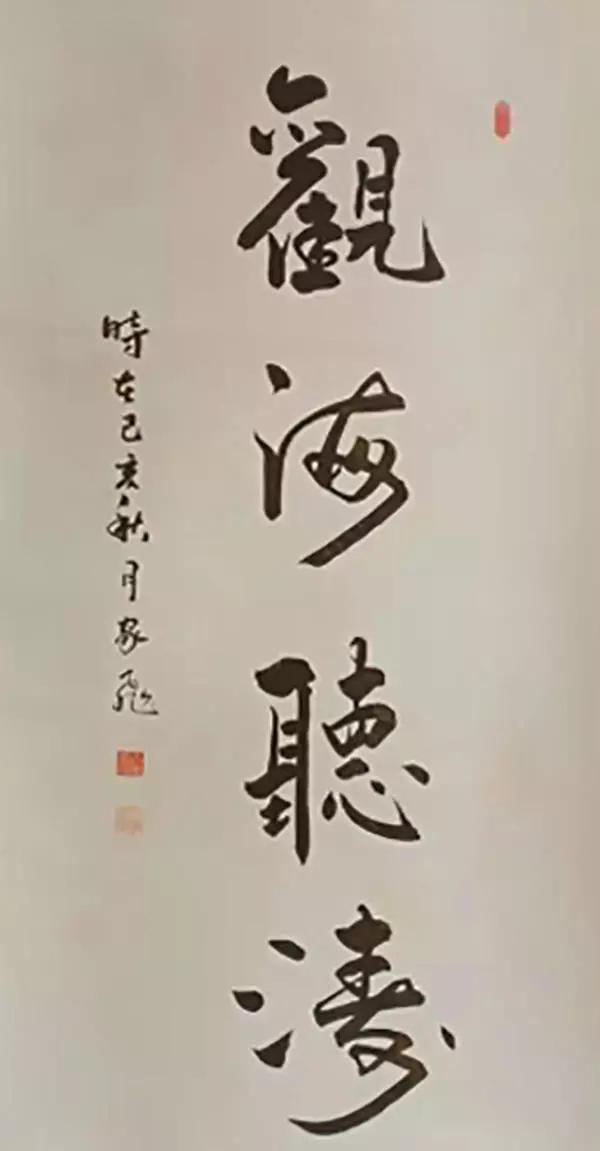 觀海聽濤
時在己亥秋月家飚